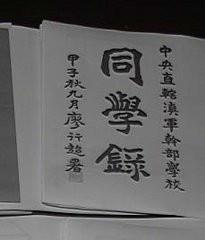 中央直轄滇軍幹部學校
同學錄
甲子秋九月廖行超署